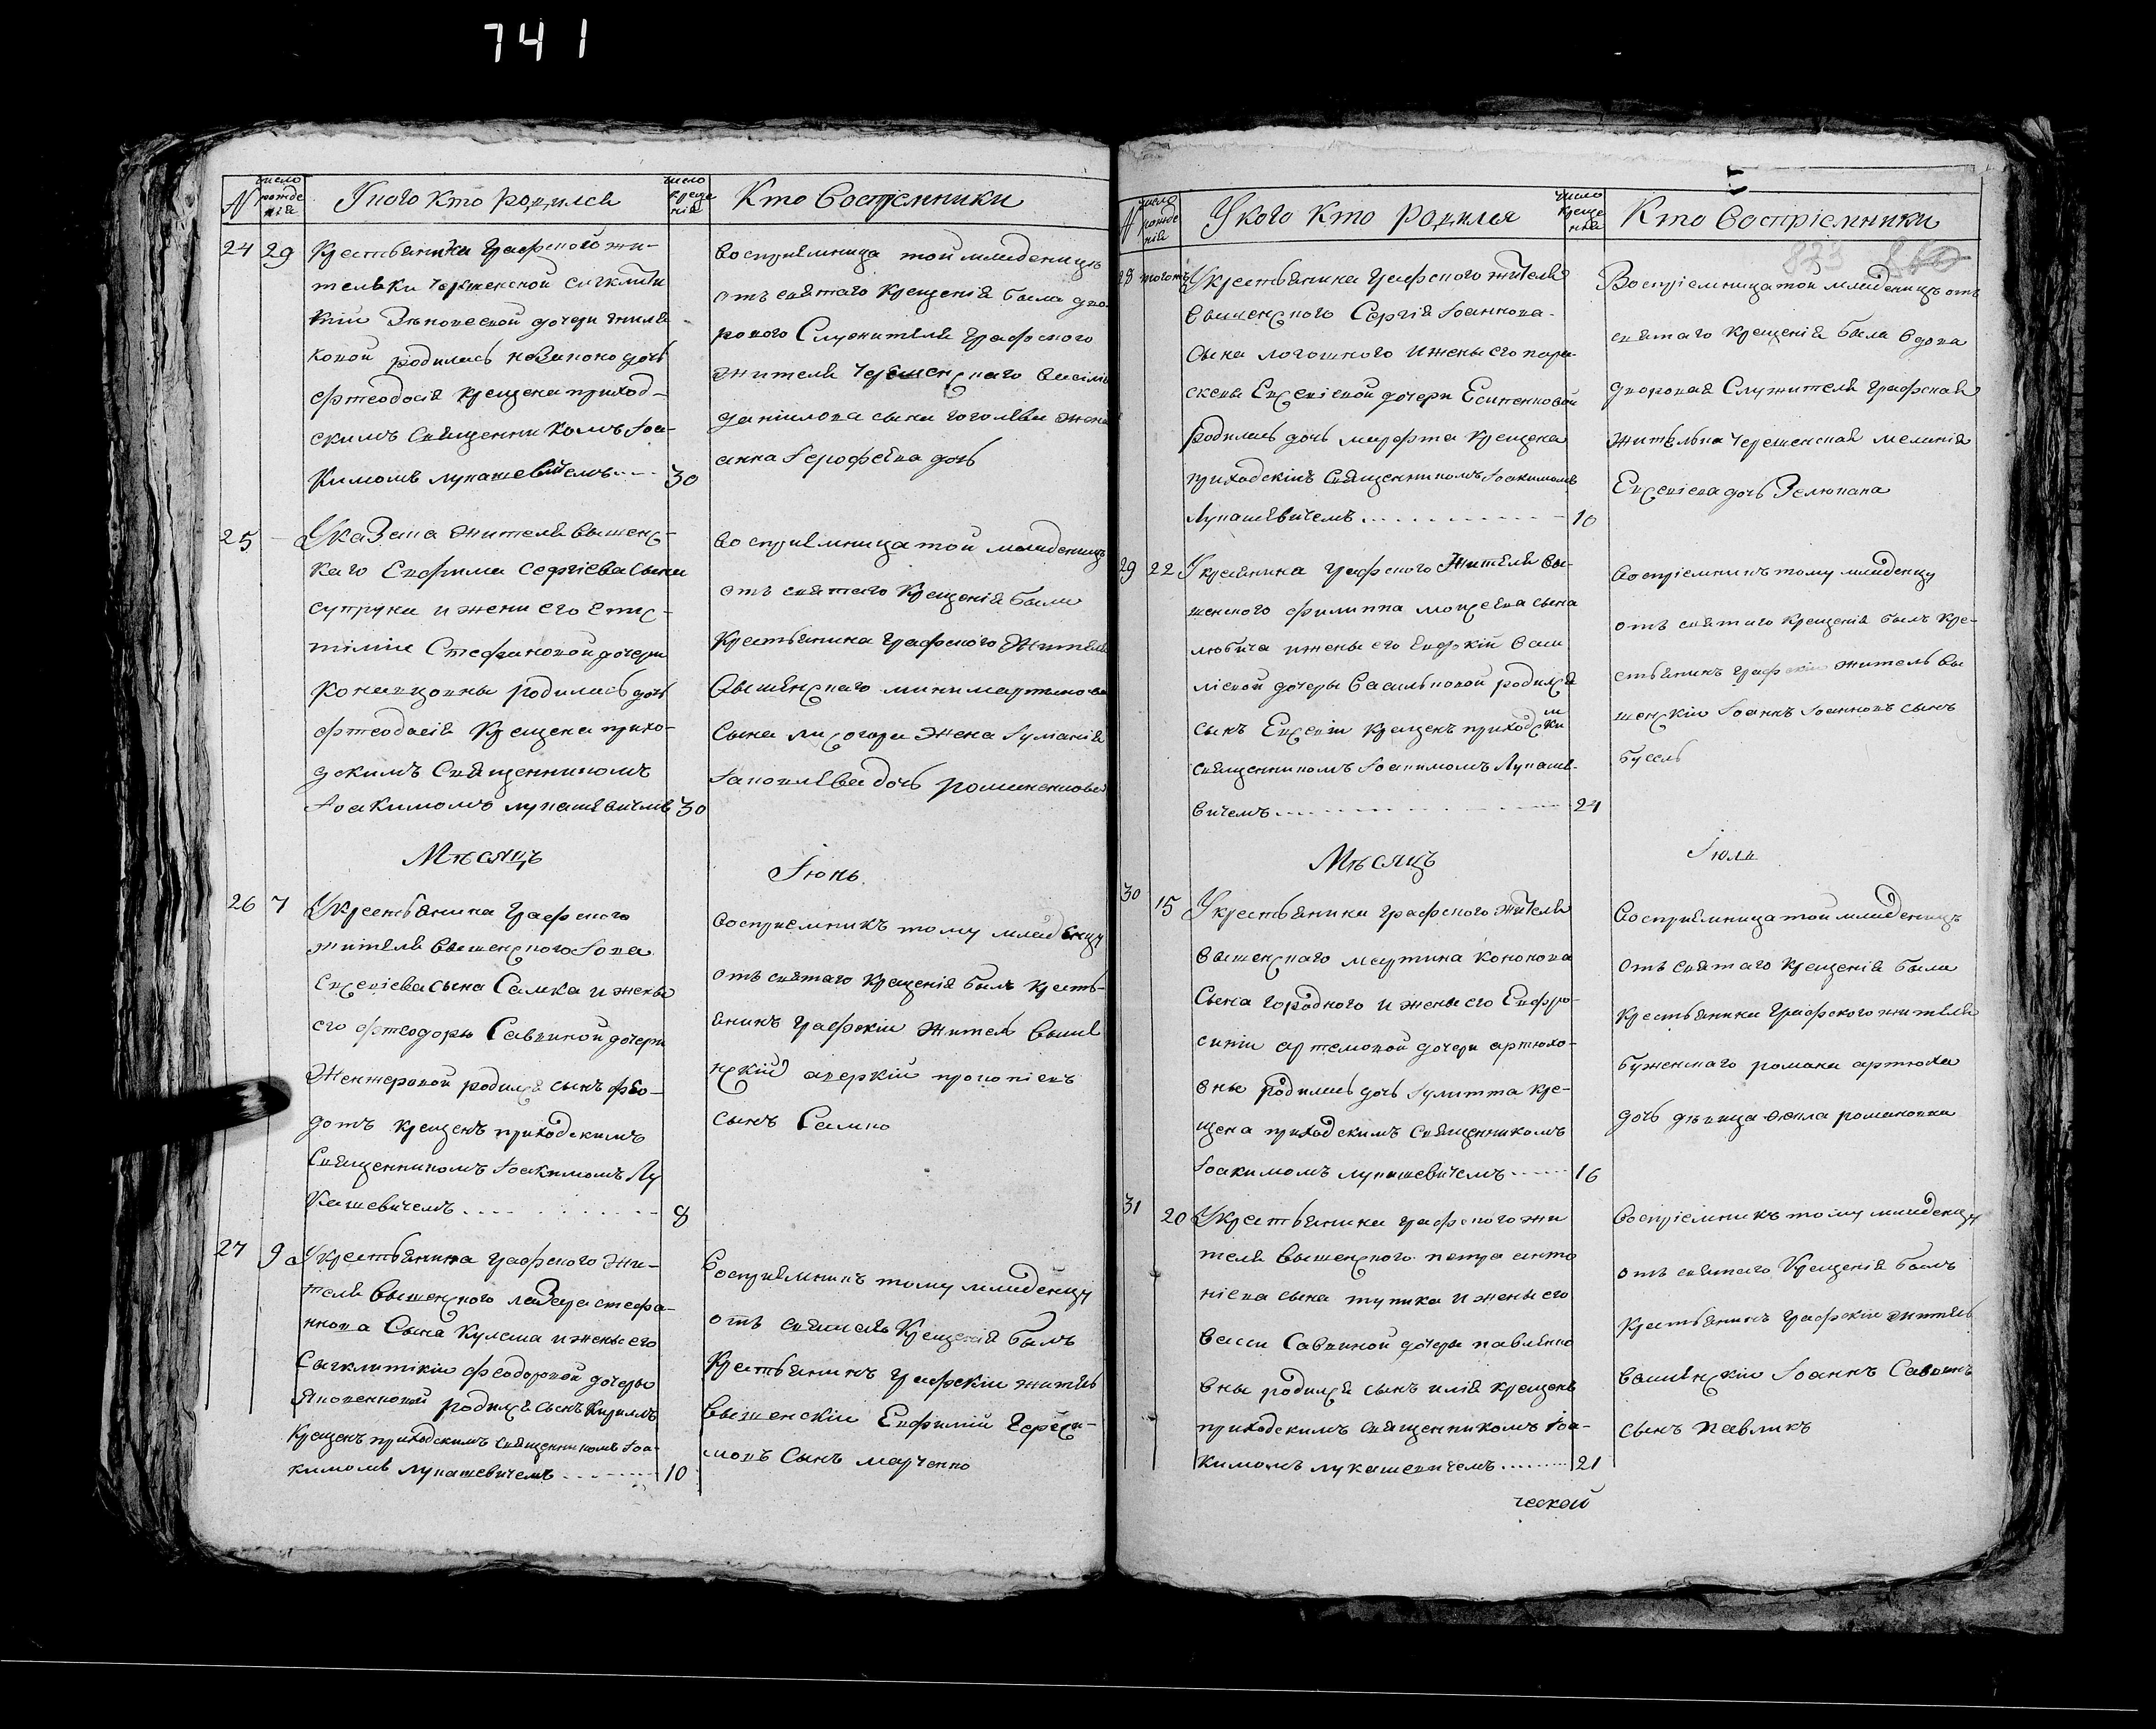 741
N
число рожде нія
У кого кто родился
число креще нія
Кто Воспріемники
24 29
Крестьянки графской жи-
тельки Черешенской Сигклити
кіи Зѣновеевой дочери жиля
ковой родилась незаконо дочь
Фтеодосія крещена приход-
скимъ Священникомъ Іоа-
кимомъ Лукашевичемъ 30
Воспріемница той младеницѣ
отъ святаго крещенія была дво
рового Служителя графского
жителя Черешенскаго Василія
Даніилова сына Гоголева жена
Анна Іерофеева дочь
25
У козака жителя Вышенс-
каго Евфима Сергіева сына
Супруна и жени его Епис-
тиміи Стефановой дочери
родилась дочь
Фтеодосія Крещена прихо-
дскимъ Священникомъ
Іоакимомъ Лукашевичемъ 30
Воспріемница той младеницѣ
отъ святаго крещенія была
крестьянина графского жителя
Вышенскаго Мини Мартинова
Сына Лисогора жена Іуліанія
дочь
Мѣсяцъ
Іюнь
26 7
У крестьянина графского
жителя Вышенского Іова
Евсевіева сына Салка и жены
его Фтеодоры Саввиной дочери
родился сынъ Фео-
дотъ крещенъ приходскимъ
Священникомъ Іоакимомъ Лу
кашевичемъ 8
Воспріемникъ тому младенцу
отъ святаго крещенія былъ кресть-
янинъ графскіи житель Выше
нскій Аверкіи Прокопіевъ
сынъ Салко
27 9
У крестьянина графского жи-
теля Вышенского Лазара Стефа-
нова Сына Кулеша и жены его
Сигклитикіи Феодоровой дочеры
Яковенковой родился сынъ Кирилъ
Крещенъ приходскимъ священникомъ Іоа-
кимомъ Лукашевичемъ 10
Воспріемникъ тому младенцу
отъ святаго Крещенія былъ
Крестьянинъ графскіи житель
Вышенскіи Евфимій Гераси-
мовъ Сынъ Марченко
N
число рожде нія
У кого кто родился
число креще нія
Кто Воспріемники
28 тогожъ
У крестьянина графского жителя
Вышенского Сергія Іоаннова
сына и жены его Пара-
скевы Евсевіевой дочери
родилась дочь Марфта крещена
приходскимъ Священникомъ Іоакимомъ
Лукашевичемъ 10
Воспріемница той младеницѣ отъ
святаго крещенія была вдова
дворовая Служителя графская
жителька Черешенская Меланія
Евсевіева дочь
29 22
У креянина графского жителя Вы-
шенского Филиппа Моисеева сына
Любича и жены его Васи
ліевой дочеры Васильковой родился
сынъ Евсевіи крещенъ приходски м
священникомъ Іоакимомъ Лукаше-
вичемъ 24
Воспріемникъ тому младенцу
отъ святаго крещенія былъ кре-
стьянинъ графскіи житель Вы
шенскіи Іоаннъ Іоанновъ сынъ
Мѣсяцъ
Іюль
30 15
У крестьянина графского жителя
Вышенскаго Мартина Кононова
Сына Городного и жены его Евфро-
синіи Артемовой дочери Артюхо-
вны родилась дочь Іулитта кре-
щена приходскимъ Священникомъ
Іоакимомъ Лукашевичемъ 16
Воспріемница той младеницѣ
отъ святаго крещенія была
крестьянина графского жителя
Романа Артюха
дочь дѣвица Романовна
31 20
У крестьянина графского жи
теля Вышенского Петра Анто
ніева сына Тупика и жены его
Васси Саввиной дочеры Павленко
вны родился сынъ Илія крещенъ
приходскимъ Священникомъ Іоа-
кимомъ Лукашевичемъ 21
Воспріемникъ тому младенцу
отъ святаго Крещенія былъ
Крестьянинъ графскіи житель
Вышенскіи Іоаннъ Саввинъ
сынъ Павликъ
ческой